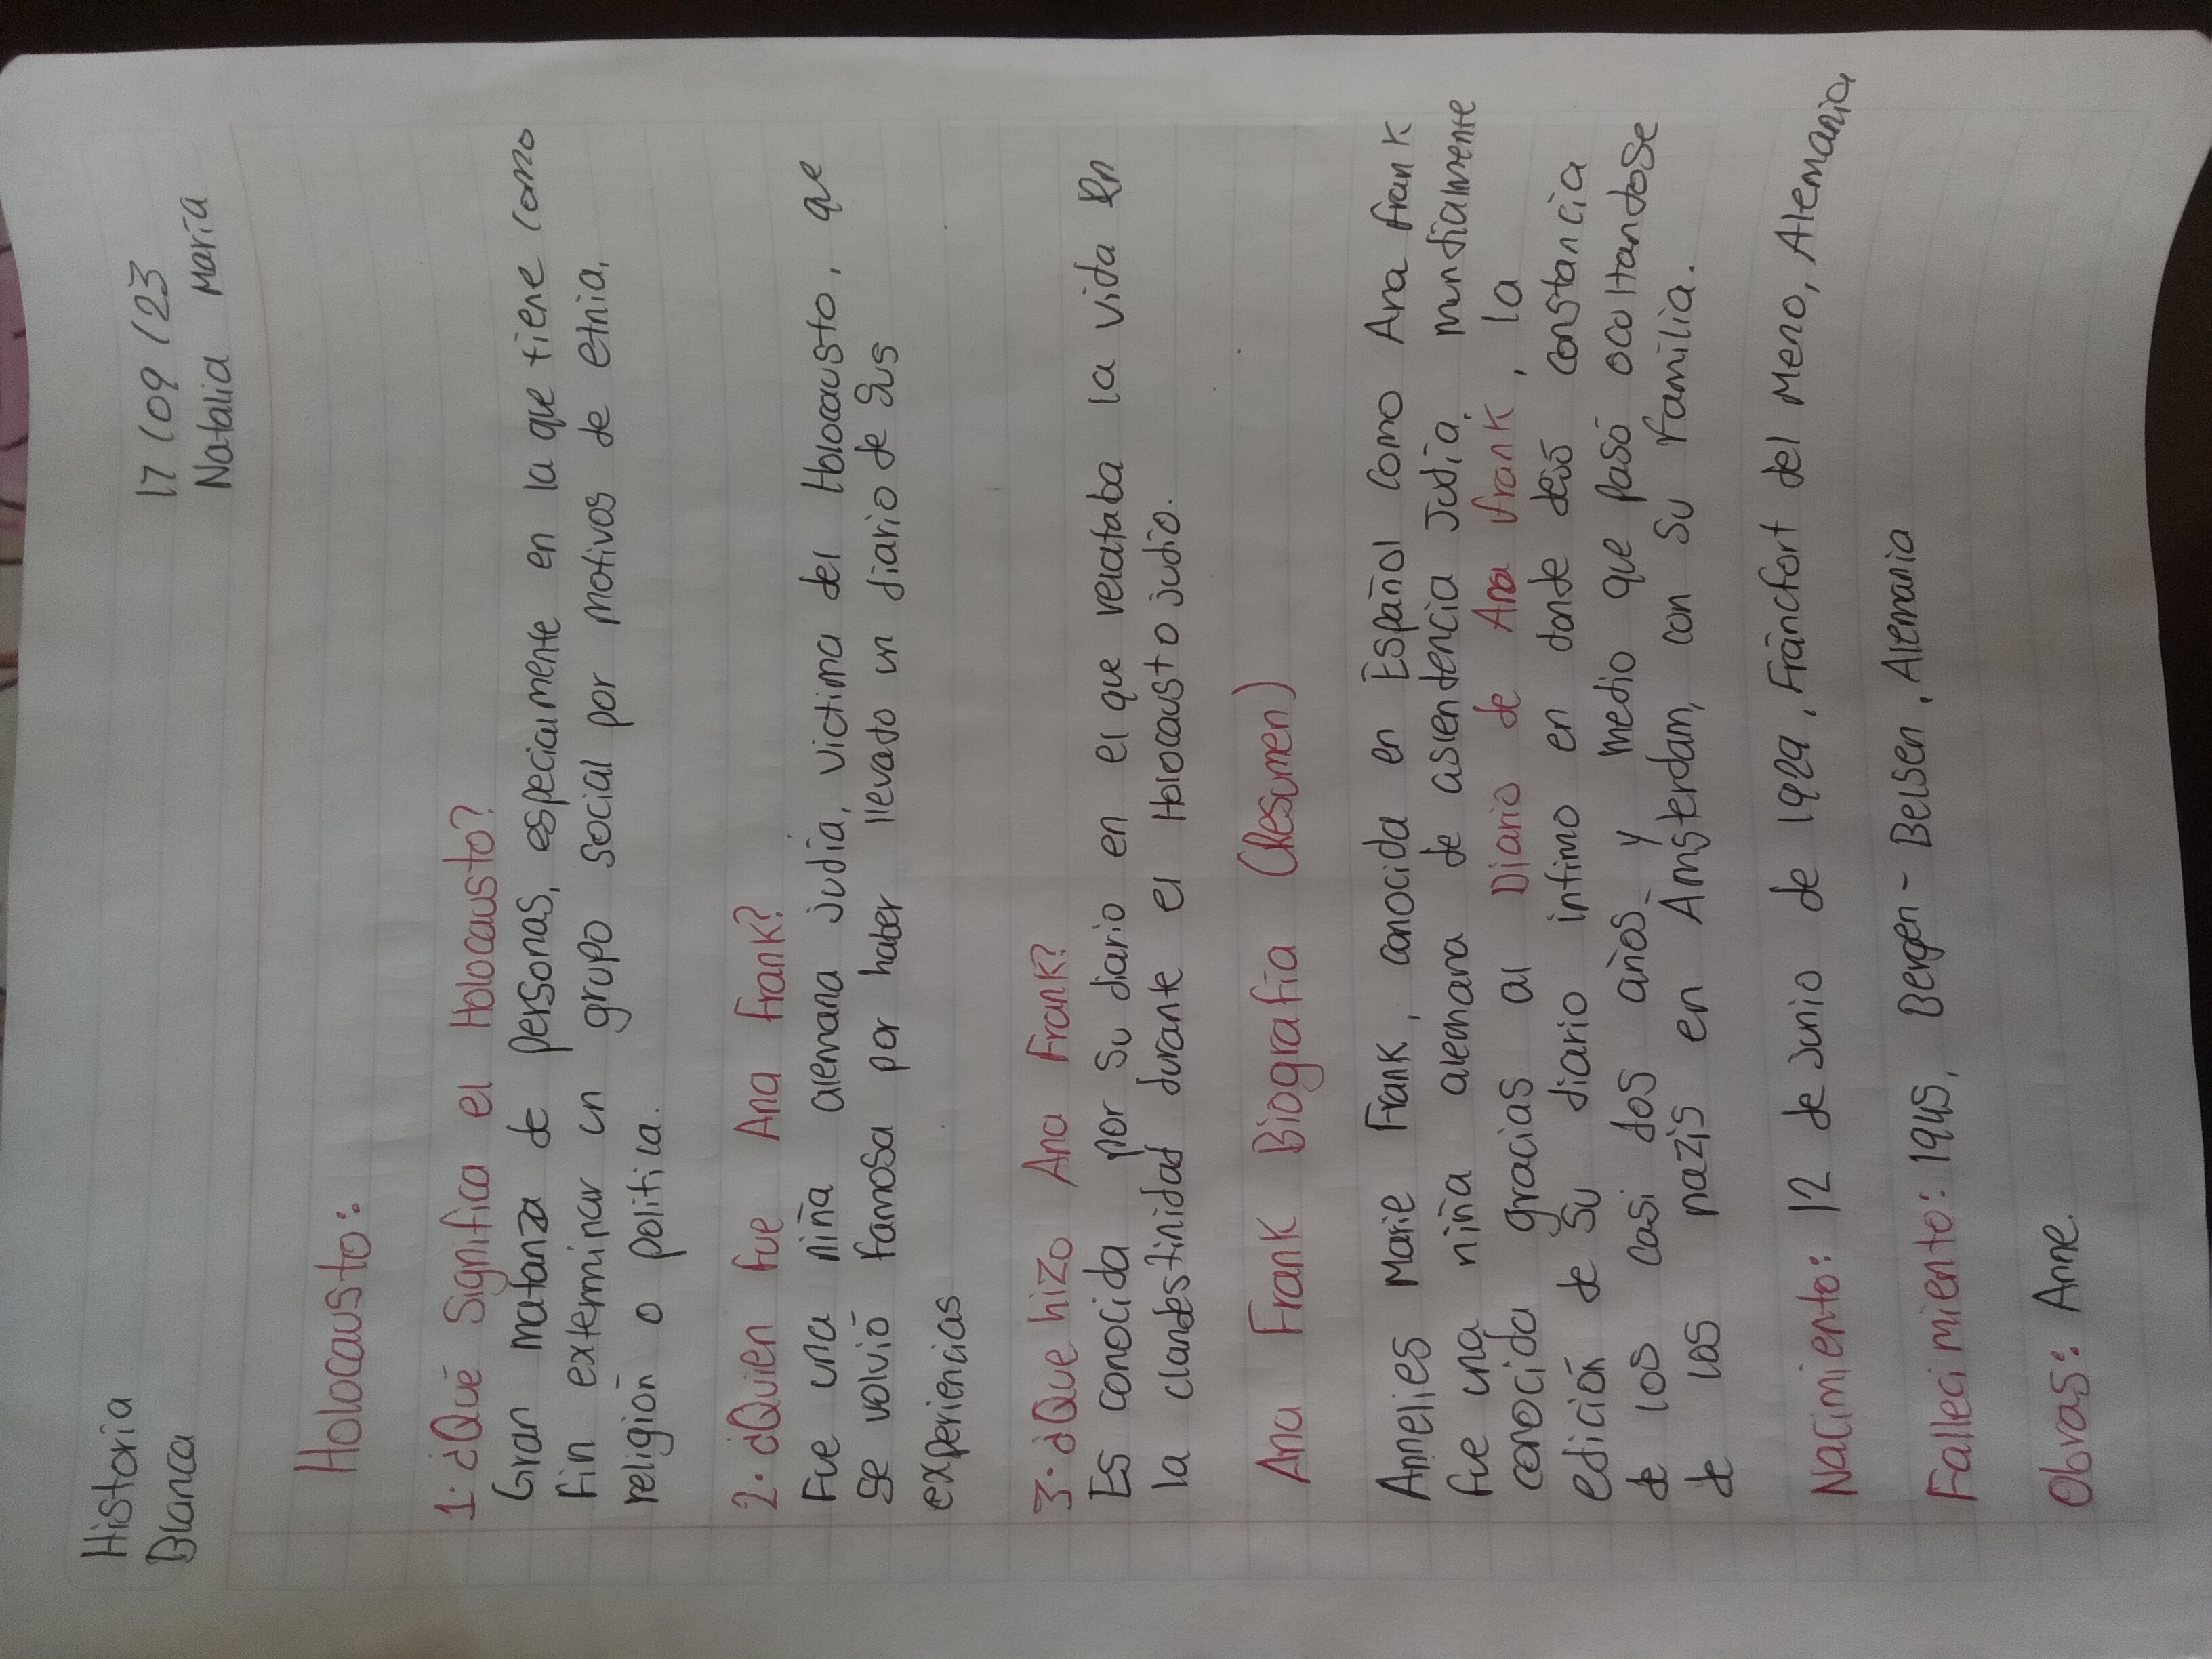 Historia
Blanca
17/09/23
Natalia María
Holocausto:
1. ¿Qué significa el Holocausto?
Gran matanza de personas, especialmente en la que tiene como
fin exterminar un grupo social por motivos de etnia,
religión o politica.
2. ¿Quien fue Ana Frank?
Fue una niña alemana judía, victima del Holocausto, que
se volvió famosa por haber llevado un diario de sus
experiencias
3. ¿Que hizo Ana Frank?
Es conocida por su diario en el que relataba la vida en
la clandestinidad durante el Holocausto judio.
Ana Frank Biografía (Resumen)
Annelies Marie Frank, conocida en Español como Ana Frank
fue una niña alemana de asiendencia Judía, mundialmente
conocida gracias al Diario de Ana Frank, la
edición de su diario intimo en donde dejó constancia
de los casi dos años y medio que pasó ocultandose
de los nazis en Amsterdan, con su familia.
Nacimiento: 12 de junio de 1929, Fráncfort del Meno, Alemania
Fallecimiento: 1945, Bergen-Belsen, Alemania
Obras: Anne.